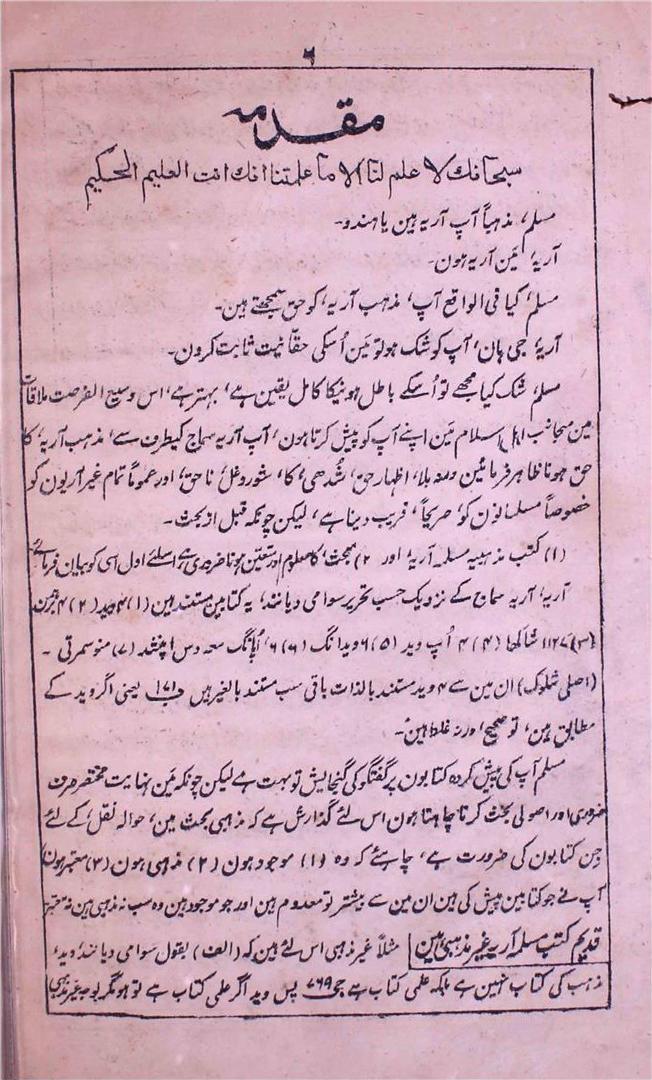 ۶
مقدمہ
سبحانك لا علم لنا الا ما علمتنا انك انت العليم الحكيم
مسلم، مذہباً آپ آریہ ہین یا ہندو۔
آریہ، مَین آریہ ہون۔
مسلم، کیا فی الواقع آپ، مذہب آریہ، کو حق سمجھتے ہین۔
آریہ، جی ہان، آپ کو شک ہو تو مَین اُسکی حقانیت ثابت کرون۔
مسلم، شک کیا مجھے تو اُسکے باطل ہونیکا کامل یقین ہے، بہتر ہے، اس وسیع الفرصت ملاقات
مین منجانب اہل اسلام مَین اپنے آپ کو پیش کرتا ہون، آپ آریہ سماج کیطرف سے، مذہب آریہ، کا
حق ہونا ظاہر فرمائین ومنہ بلا، اظہار حق، شُدھی، کا، شور وغل ناحق، اور عموماً تمام غیر آریون کو
خصوصاً مسلمانون کو، صریحاً، فریب دینا ہے، لیکن چونکہ قبل از بحث۔
(۱) کتب مذہبیہ مسلمہ آریہ، اور (۲) مبحث، کا معلوم اور متعین ہونا ضروری ہے اسلئے اول اسی کو بیان فرمائے
آریہ، آریہ سماج کے نزدیک حسب تحریر سوامی دیانند، یہ کتابین مستند ہین (۱) ۴ وید (۲) ۴ برہمن
(۳) ۱۱۲۷ شاکھا (۴) ۴ اُپ وید (۵) ۶ ویدانگ (۶) ۶، اُپانگ معہ دس اپنشد (۷) منوسمرتی ۔
(اصلی شلوک) ان مین سے ۴ وید مستند بالذات باقی سب مستند بالغیر ہیں ۱۷۱ یعنی اگر وید کے
مطابق ہین، تو صحیح، ورنہ غلط ہین۔
مسلم آپ کی پیش کردہ کتابون پر گفتگو کی گنجایش تو بہت ہے لیکن چونکہ مَین نہایت مختصر صرف
ضروری اور اصولی بحث کرنا چاہتا ہون اس لئے گذارش ہے کہ مذہبی بحث مین، حوالہ نقل، کے لئے
جن کتابون کی ضرورت ہے، چاہئے کہ وہ (۱) موجود ہون (۲) مذہبی ہون (۳) معتبر ہون
آپ نے جو کتابین پیش کی ہین ان مین سے بیشتر تو معدوم ہین اور جو موجود ہین وہ سب نہ مذہبی ہین نہ معتبر
قدیم کتب مسلمہ آریہ غیر مذہبی ہین مثلاً غیر مذہبی اس لئے ہین کہ (الف) بقول سوامی دیانند، وید،
مذہب کی کتاب نہین ہے بلکہ علمی کتاب ہے ۷۶۹ پس وید اگر علمی کتاب ہے تو ہو مگر بوجہ غیر مذہبی